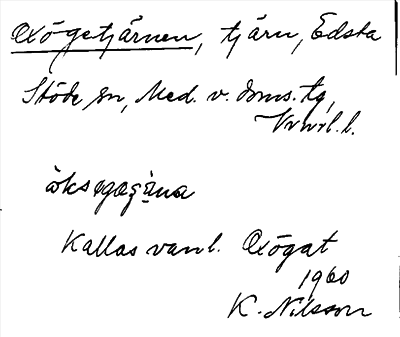 Oxögetjärnen, tjärn, Edsta
Stöde sn, Med. v. doms. tg,
Vnrl. l.
Kallas vanl. Oxögat
1960
K. Nilsson